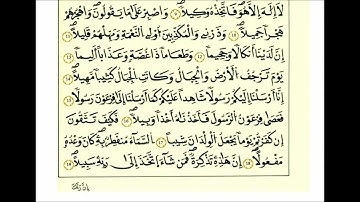 لَآ إِلَٰهَ إِلَّا هُوَ فَٱتَّخِذْهُ وَكِيلًا ٩ وَٱصْبِرْ عَلَىٰ مَا يَقُولُونَ وَٱهْجُرْهُمْ
هَجْرًا جَمِيلًا ١٠ وَذَرْنِى وَٱلْمُكَذِّبِينَ أُو۟لِى ٱلنَّعْمَةِ وَمَهِّلْهُمْ قَلِيلًا ١١
إِنَّ لَدَيْنَآ أَنكَالًا وَجَحِيمًا ١٢ وَطَعَامًا ذَا غُصَّةٍ وَعَذَابًا أَلِيمًا ١٣
يَوْمَ تَرْجُفُ ٱلْأَرْضُ وَٱلْجِبَالُ وَكَانَتِ ٱلْجِبَالُ كَثِيبًا مَّهِيلًا ١٤
إِنَّآ أَرْسَلْنَآ إِلَيْكُمْ رَسُولًا شَٰهِدًا عَلَيْكُمْ كَمَآ أَرْسَلْنَآ إِلَىٰ فِرْعَوْنَ رَسُولًا ١٥
فَعَصَىٰ فِرْعَوْنُ ٱلرَّسُولَ فَأَخَذْنَٰهُ أَخْذًا وَبِيلًا ١٦ فَكَيْفَ تَتَّقُونَ
إِن كَفَرْتُمْ يَوْمًا يَجْعَلُ ٱلْوِلْدَٰنَ شِيبًا ١٧ ٱلسَّمَآءُ مُنفَطِرٌۢ بِهِۦ كَانَ وَعْدُهُۥ
مَفْعُولًا ١٨ إِنَّ هَٰذِهِۦ تَذْكِرَةٌ فَمَن شَآءَ ٱتَّخَذَ إِلَىٰ رَبِّهِۦ سَبِيلًا ١٩
إِنَّ رَبَّكَ